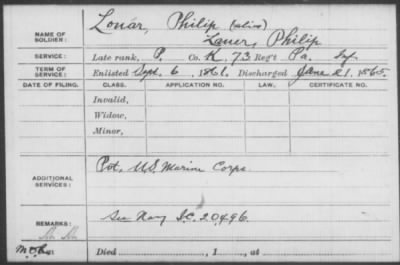 Lonar, Philip (alias)
NAME OF SOLDIER: Lauer, Philip
SERVICE: Late rank, P. Co. K, 73 Reg't Pa. Inf.
TERM OF SERVICE: Enlisted Sept. 6, 1861. Discharged June 21, 1865.
DATE OF FILING. CLASS. APPLICATION NO. LAW. CERTIFICATE NO.
Invalid,
Widow,
Minor,
ADDITIONAL SERVICES: Pvt. U.S. Marine Corps
REMARKS: See Navy S.C. 20496.
Died , 1 , at